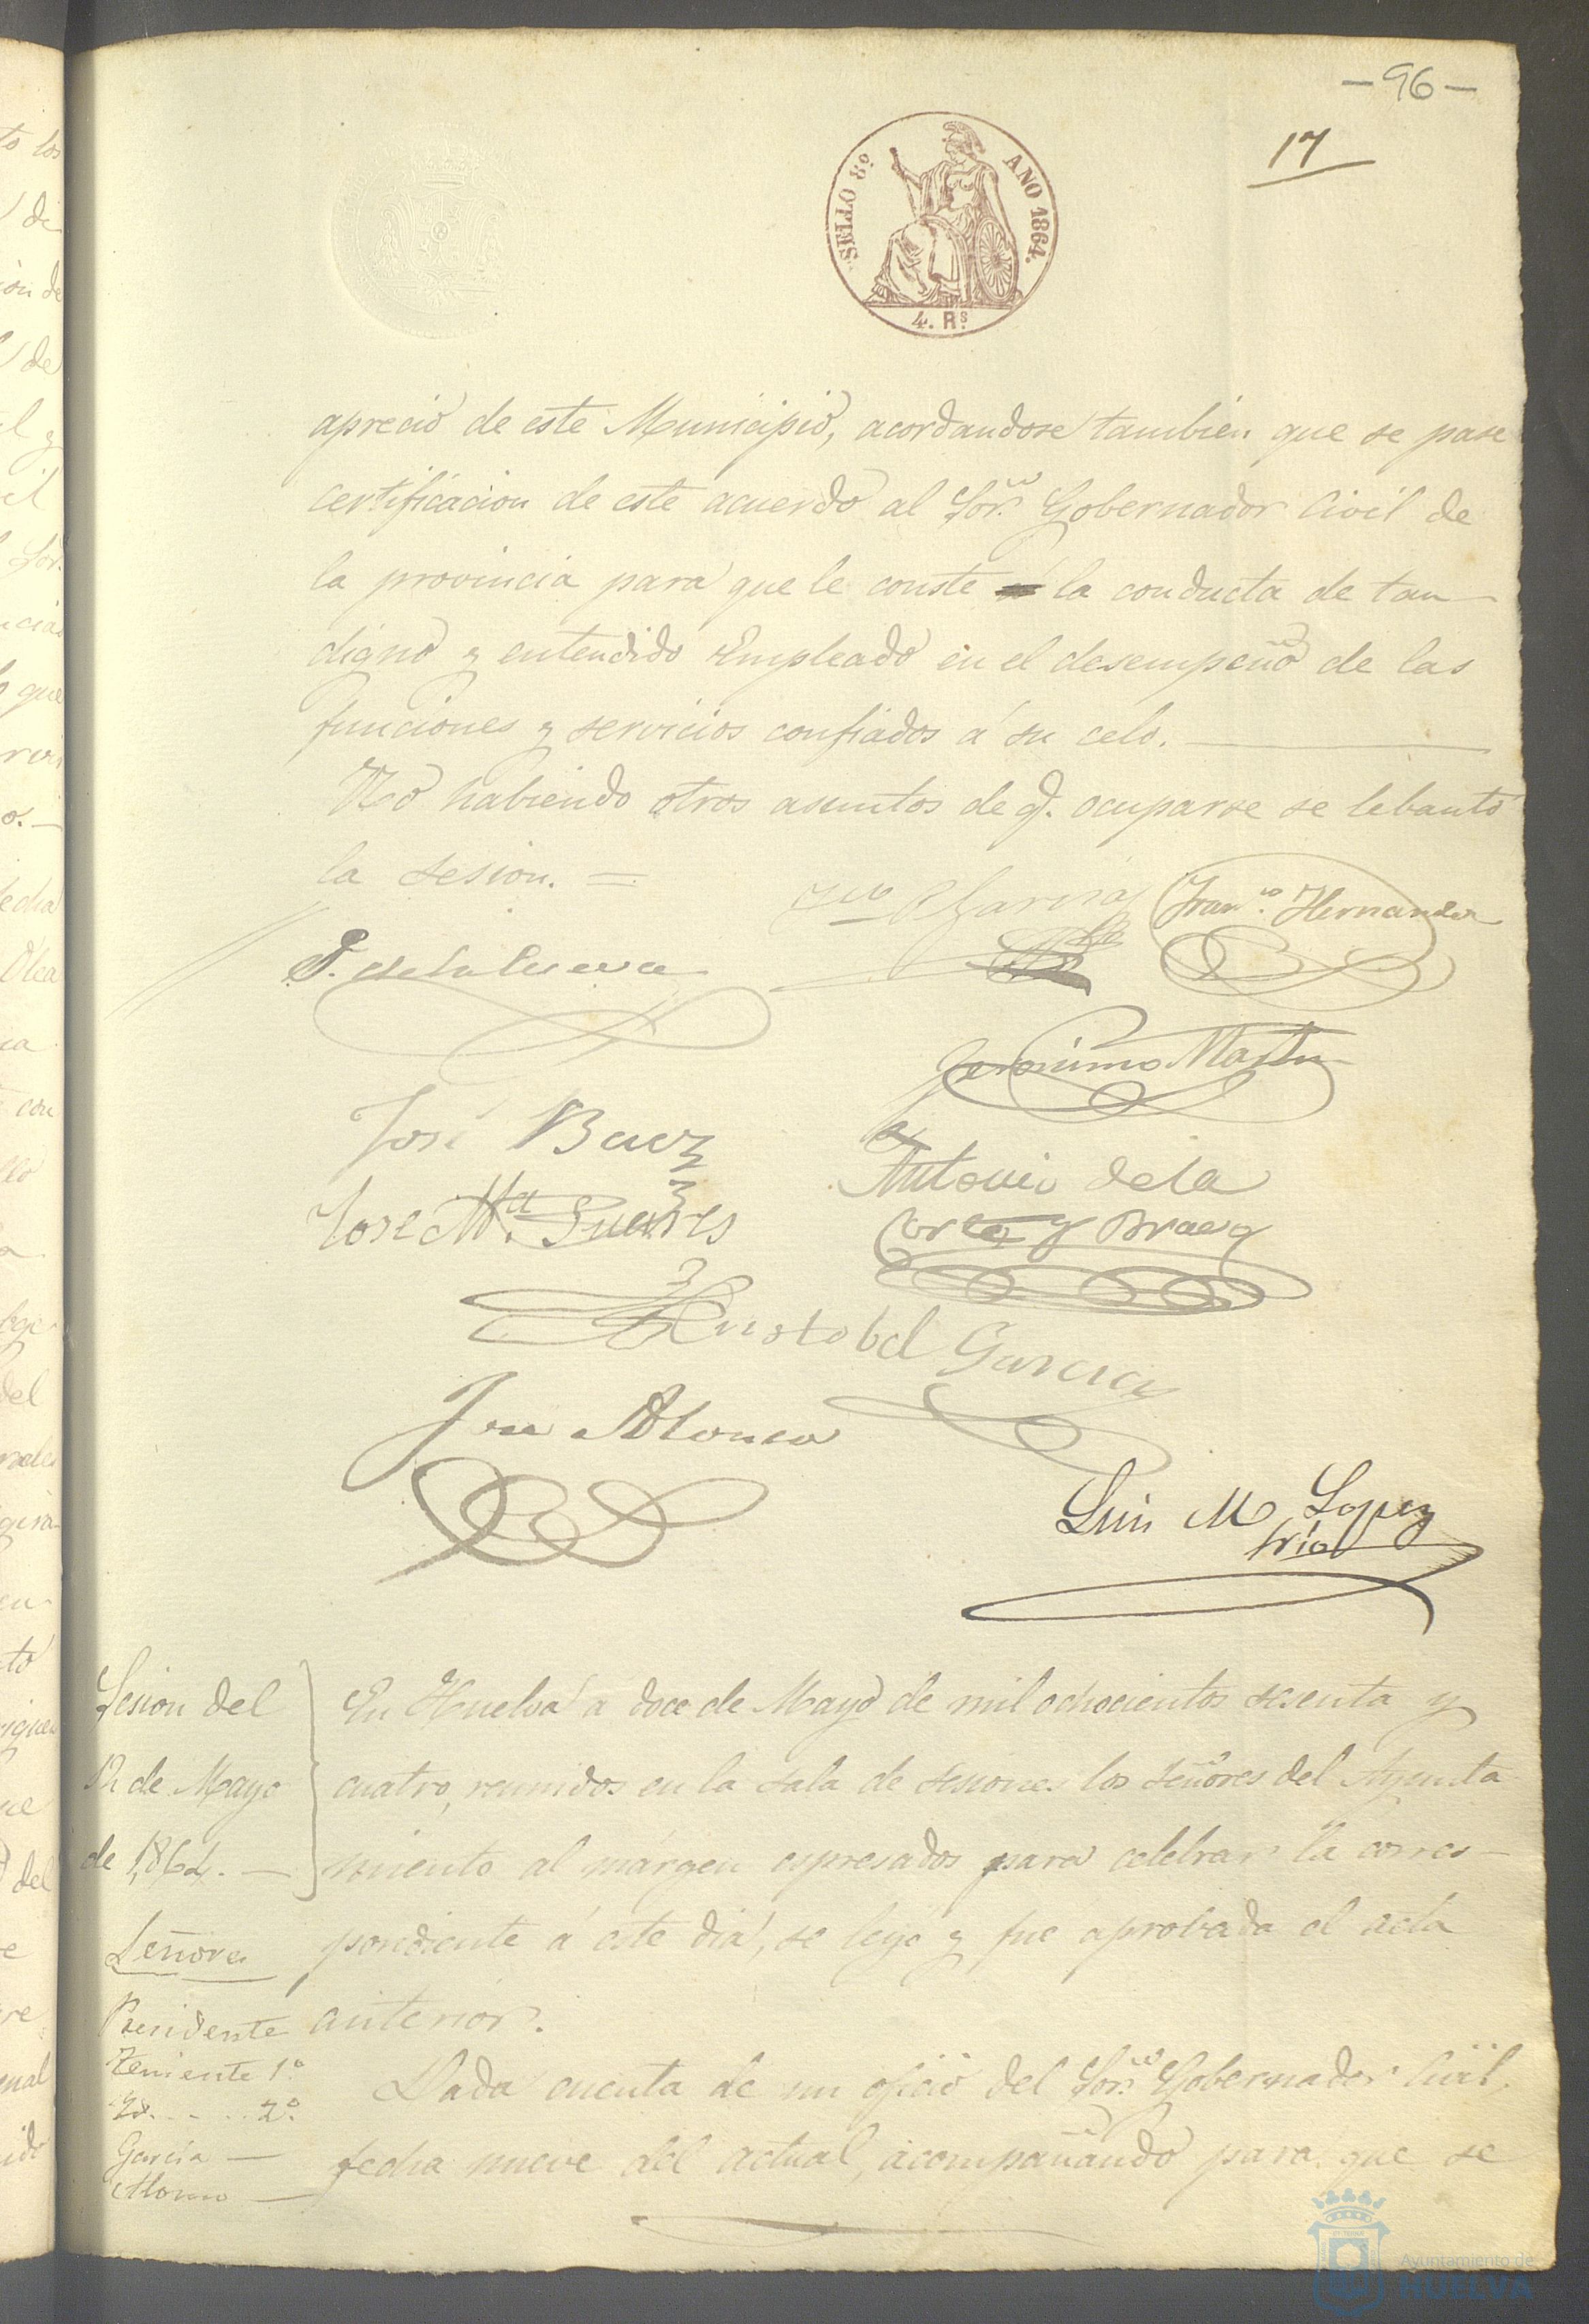 — 96 —
17
SELLO 8º AÑO 1864.
4. Rs.
aprecio de este Municipio, acordandose tambien que se pase
certificacion de este acuerdo al Sor. Gobernador Civil de
la provincia para que le conste la conducta de tan
digno y entendido Empleado en el desempeño de las
funciones y servicios confiados á su celo.
No habiendo otros asuntos de q. ocuparse se lebantó
la sesion. =
García
Franco. Hernandez
P. de la Cueva
Jeronimo Martin
José Baez
Antonio de la
Corte y Bravo
José Ma. Suares
Cristobal Garcia
José Alonso
Luis M Lopez
Srio
Sesion del
12 de Mayo
de 1864. —
Señores
Presidente
Teniente 1º
Id. . . . . 2º
García —
Alonso —
En Huelva á doce de Mayo de mil ochocientos sesenta y
cuatro, reunidos en la sala de sesiones los señores del Ayunta
miento al márgen espresados para celebrar la corres-
pondiente á este dia, se leyó y fue aprobada el acta
anterior.
Dada cuenta de un oficio del Sor. Gobernador Civil,
fecha nueve del actual, acompañando para que se
Ayuntamiento de
HUELVA